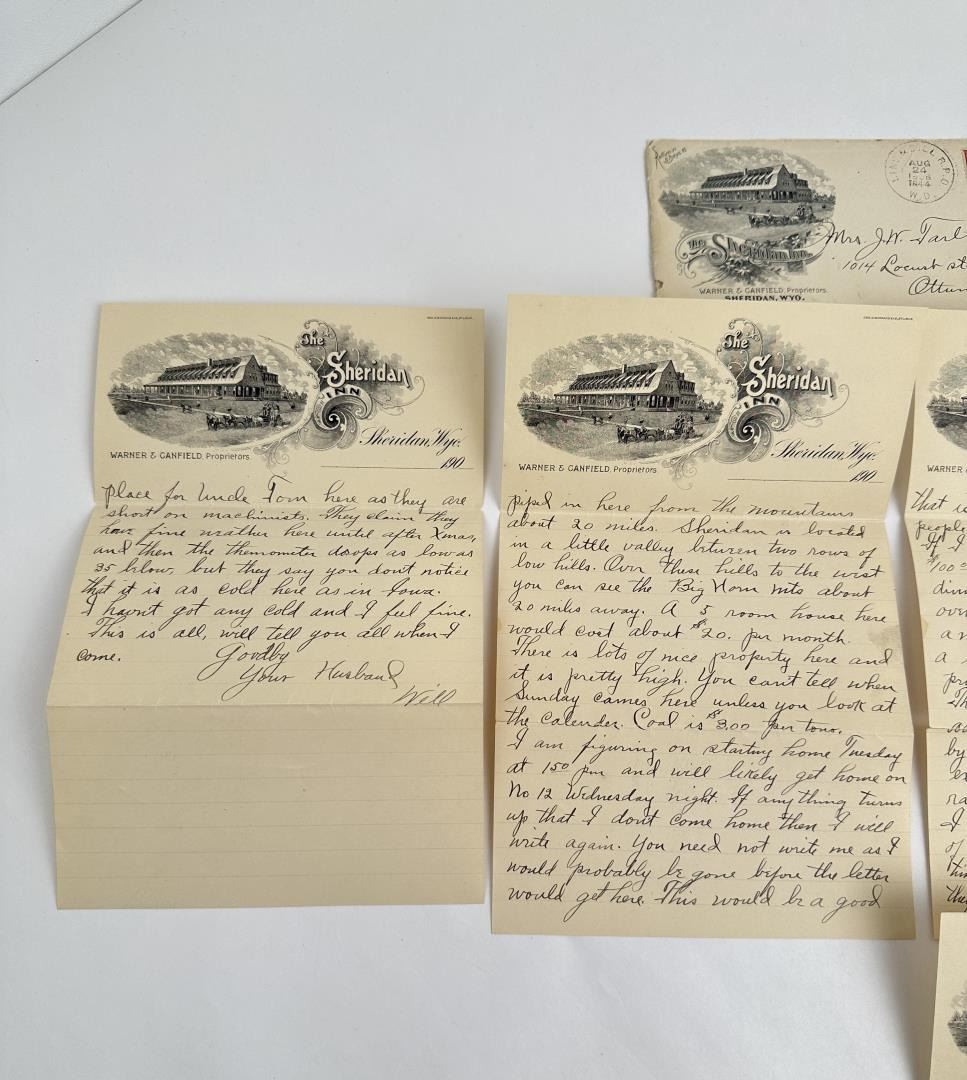 Return
Warner
The Sheridan Inn.
WARNER & CANFIELD, Proprietors.
SHERIDAN, WYO.
AUG
24
1844
W.D.
Mrs. J.W. Tarl
1014 Locust st
Ottum
The Sheridan INN
Sheridan, Wyo.
190
WARNER & CANFIELD, Proprietors.
place for Uncle Tom here as they are
short on machinists. They claim they
have fine wrather here until after Xmas,
and then the themometer drops as low as
35 below, but they say you dont notice
that it is as cold here as in Iowa.
I havnt got any cold and I feel fine.
This is all, will tell you all when I
come. Goodby
Your Husband
Will
The Sheridan INN
Sheridan, Wyo.
190
WARNER & CANFIELD, Proprietors.
piped in here from the mountains
about 20 miles. Sheridan is located
in a little valley between two rows of
low hills. Over these hills to the west
you can see the Big Horn mts about
20 miles away. A 5 room house here
would cost about $20. per month.
There is lots of nice property here and
it is pretty high. You can't tell when
Sunday comes here unless you look at
the calender. Coal is $3.00 per tonn.
I am figuring on starting home Tuesday
at 150 pm and will likely get home on
No 12 Wednesday night. If anything turns
up that I dont come home then I will
write again. You need not write me as I
would probably be gone before the letter
would get here. This would be a good
WARNER &
that is
people
If I
$100
din
over
an
a
pr
Th
by
ex
ra
I
of
thin
they